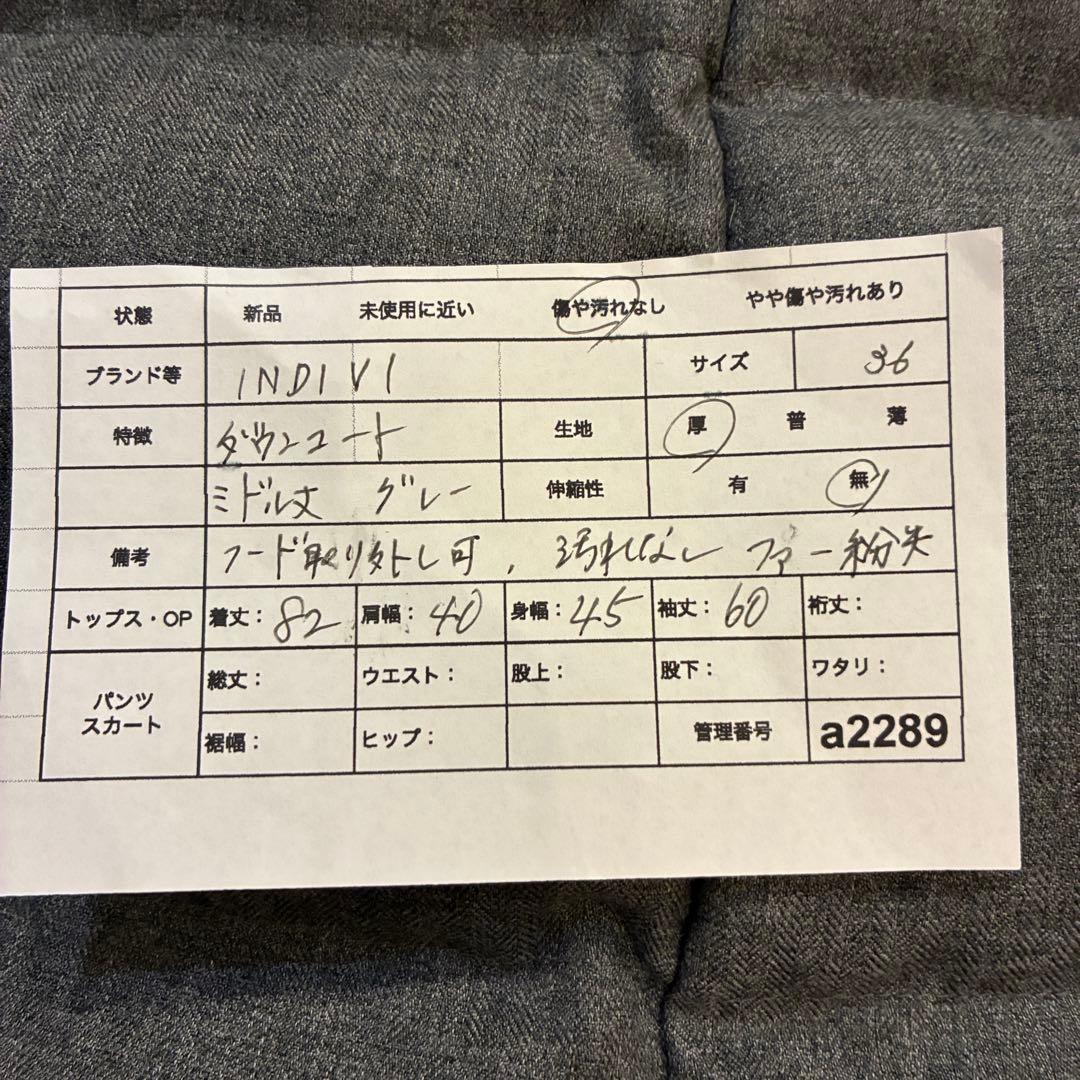 状態 新品 未使用に近い 傷や汚れなし やや傷や汚れあり
ブランド等 INDIVI サイズ 36
特徴 ダウンコート 生地 厚 普 薄
ミドル丈 グレー 伸縮性 有 無
備考 フード取り外し可, 汚れなし ファー紛失
トップス・OP 着丈: 82 肩幅: 40 身幅: 45 袖丈: 60 裄丈:
パンツ スカート 総丈: ウエスト: 股上: 股下: ワタリ:
裾幅: ヒップ: 管理番号 a2289